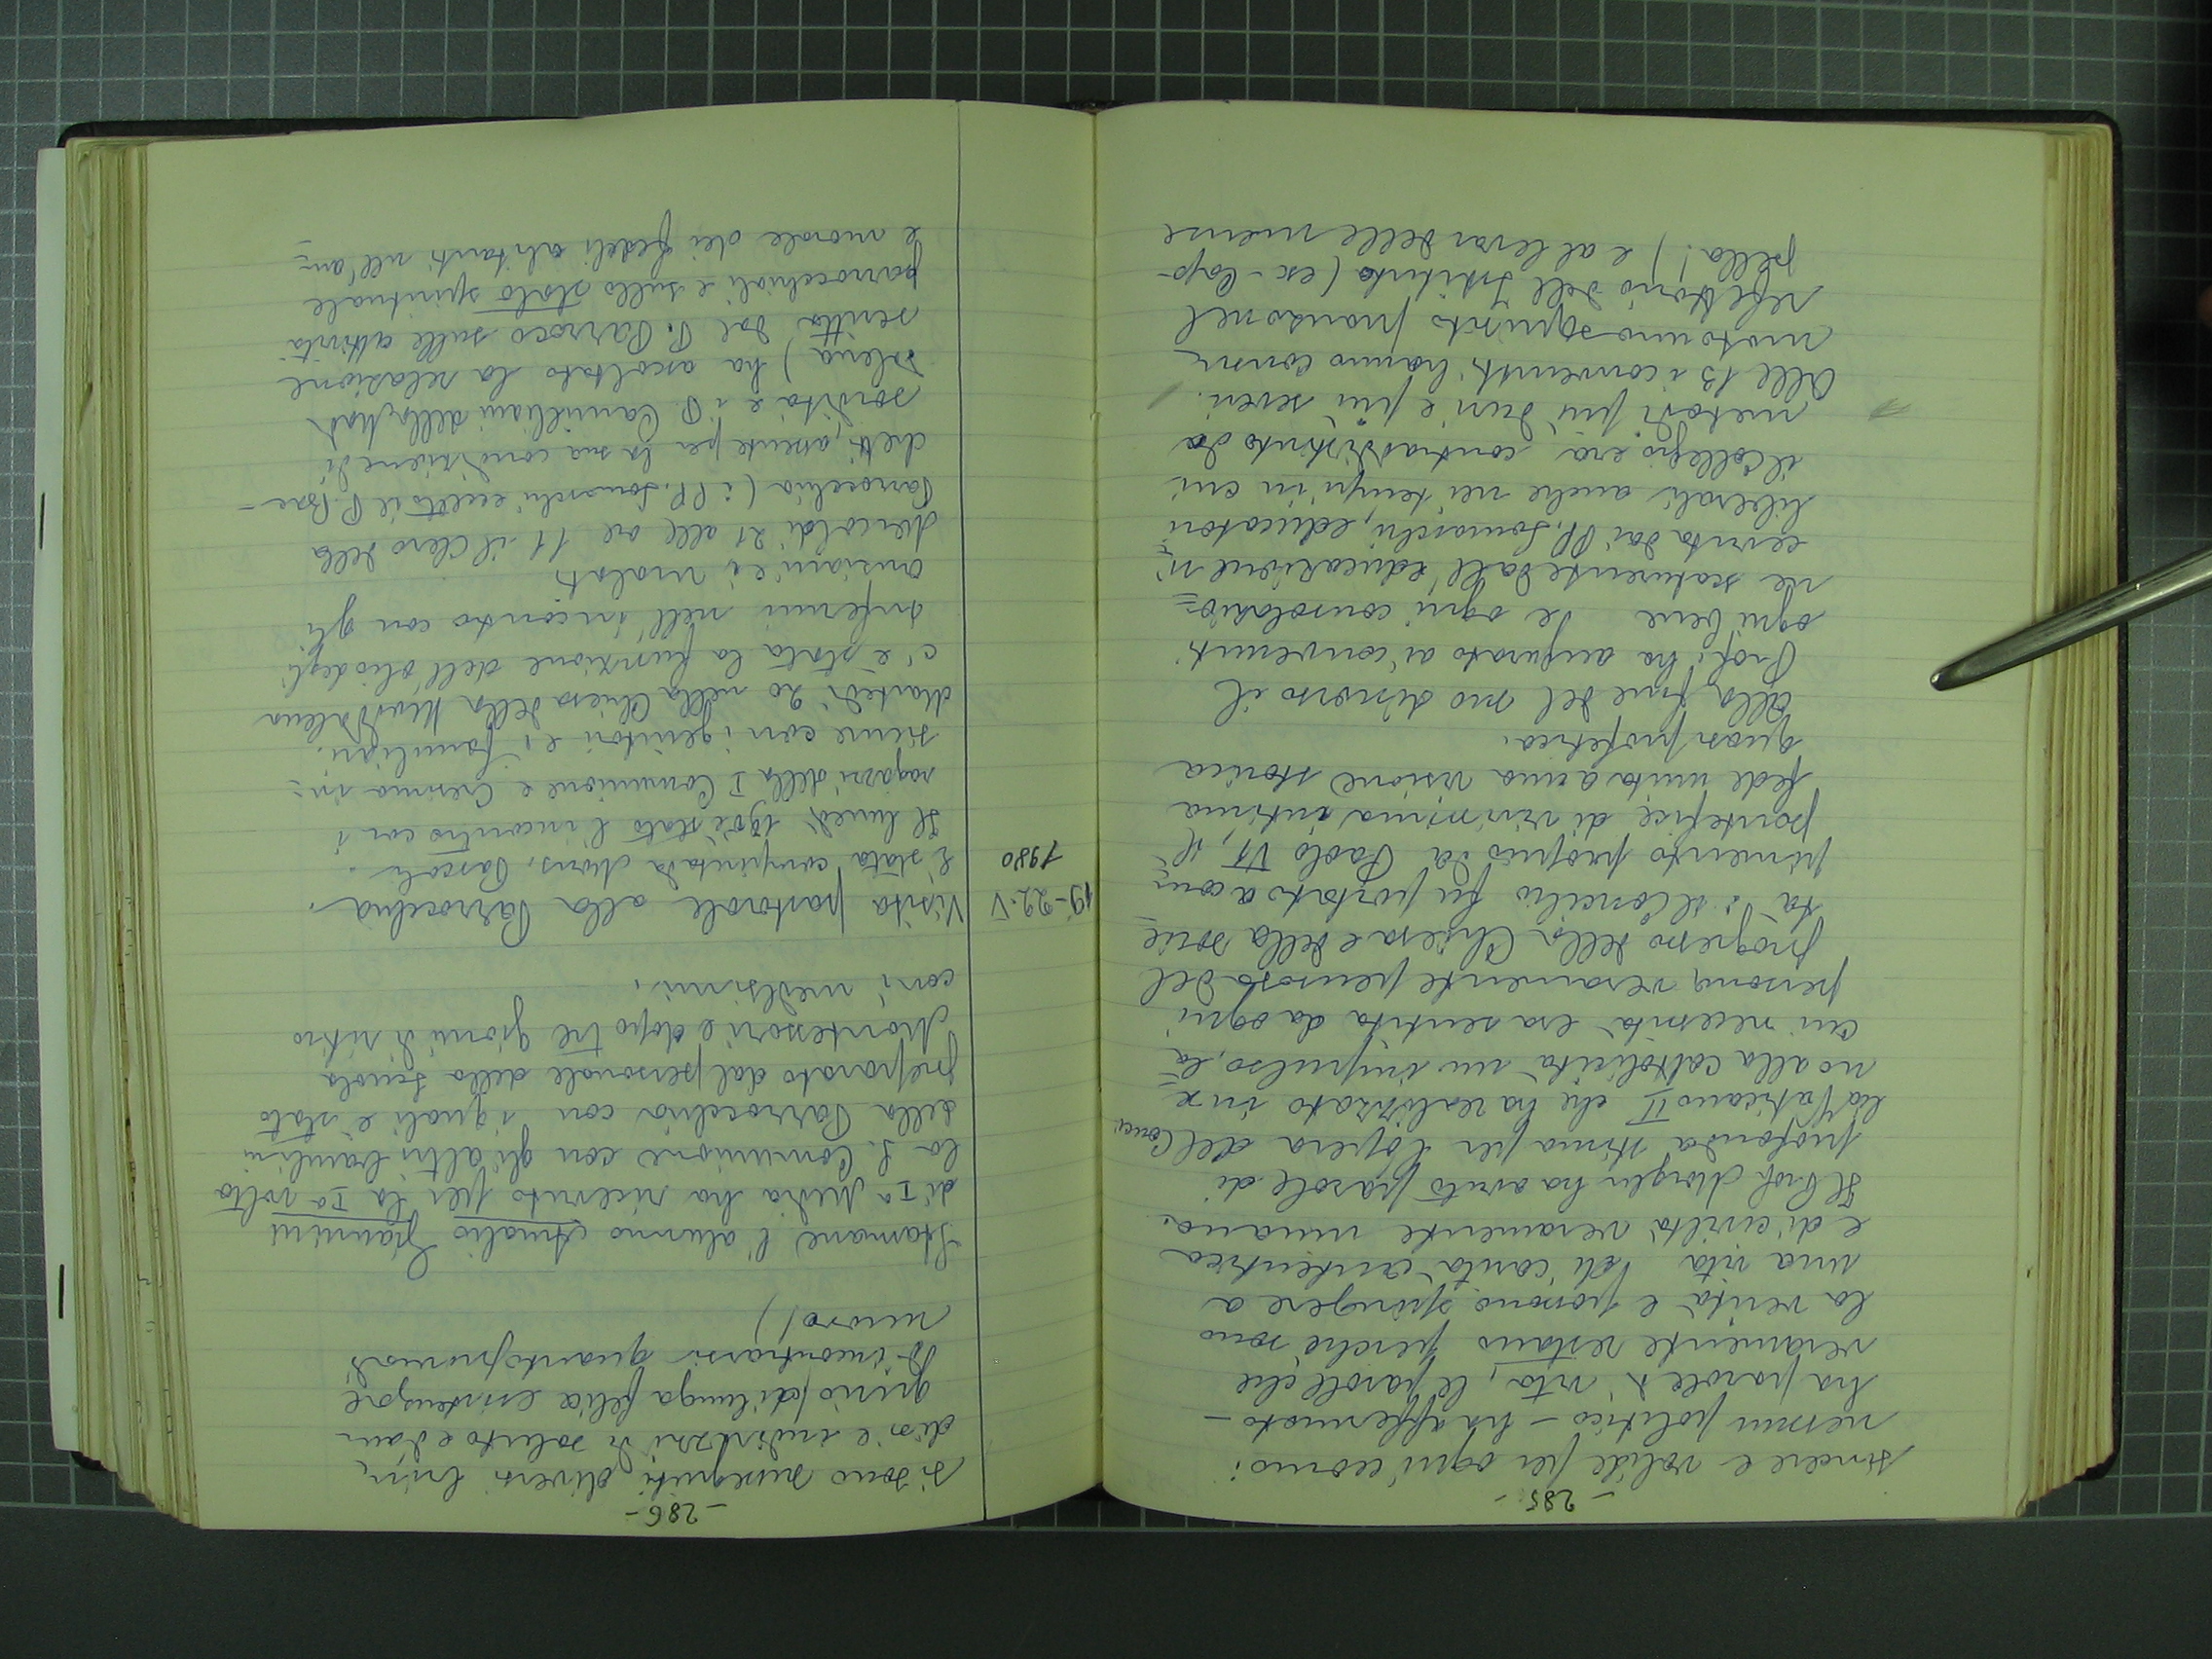 - 285 -
sincere e valide per ogni uomo:
nessun politico - ha affermato -
ha parole di vita, le parole che
veramente restano perché sono
la verità e possono spingere a
una vita di carità autentica
e di civiltà veramente umana.
Il Prof. Morghen ha avuto parole di
profonda stima per l'opera del Conci
lio Vaticano II che ha realizzato in se
no alla cattolicità un impulso, la
cui necessità era sentita da ogni
persona veramente pensosa del
progresso della Chiesa e della socie
tà: il Concilio fu portato a com=
pimento proprio da Paolo VI, il
pontefice di vivissima intima
fede unita a una visione storica
quasi profetica.
Alla fine del suo discorso il
Prof. ha augurato ai convenuti
ogni bene e ogni consolazio=
ne scaturente dall'educazione ri=
cevuta dai PP. Somaschi, educatori
liberali anche nei tempi in cui
il Collegio era contraddistinto da
metodi più duri e più severi.
Alle 13 i convenuti hanno consu=
mato uno squisito pranzo nel
refettorio dell'Istituto (ex-Cap-
pella!) e al levar delle mense
- 286 -
si sono susseguiti diversi brin
disi e indirizzi di saluto e d'au
gurio (di lunga felice esistenza e
di incontrarsi quanto prima di
nuovo!)
Stamane l'alunno Amalio Giannini
di Ia Media ha ricevuto per la Ia volta
la S. Comunione con gli altri bambini
della Parrocchia con i quali è stato
preparato dal personale della Scuola
Montessori e dopo tre giorni di ritiro
coi medesimi.
19-22.V
1980
Visita pastorale alla Parrocchia.
E' stata compiuta da Mons. Pascoli.
Il lunedì 19 è stato l'incontro con i
ragazzi della I Comunione e Cresima in=
sieme con i genitori e i familiari.
Martedì 20 nella Chiesa della Maddalena
c'è stata la funzione dell'olio degli
infermi nell'incontro con gli
anziani e i malati
Mercoldì 21 alle ore 11 il Clero della
Parrocchia (i PP. Somaschi eccetto il P.
chetti, assente per la sua condizione di
sordità e i P. Camilliani della Mad
dalena) ha ascoltato la relazione
scritta dal P. Parroco sulle attività
parrocchiali e sullo stato spirituale
e morale dei fedeli abitanti nell'am=